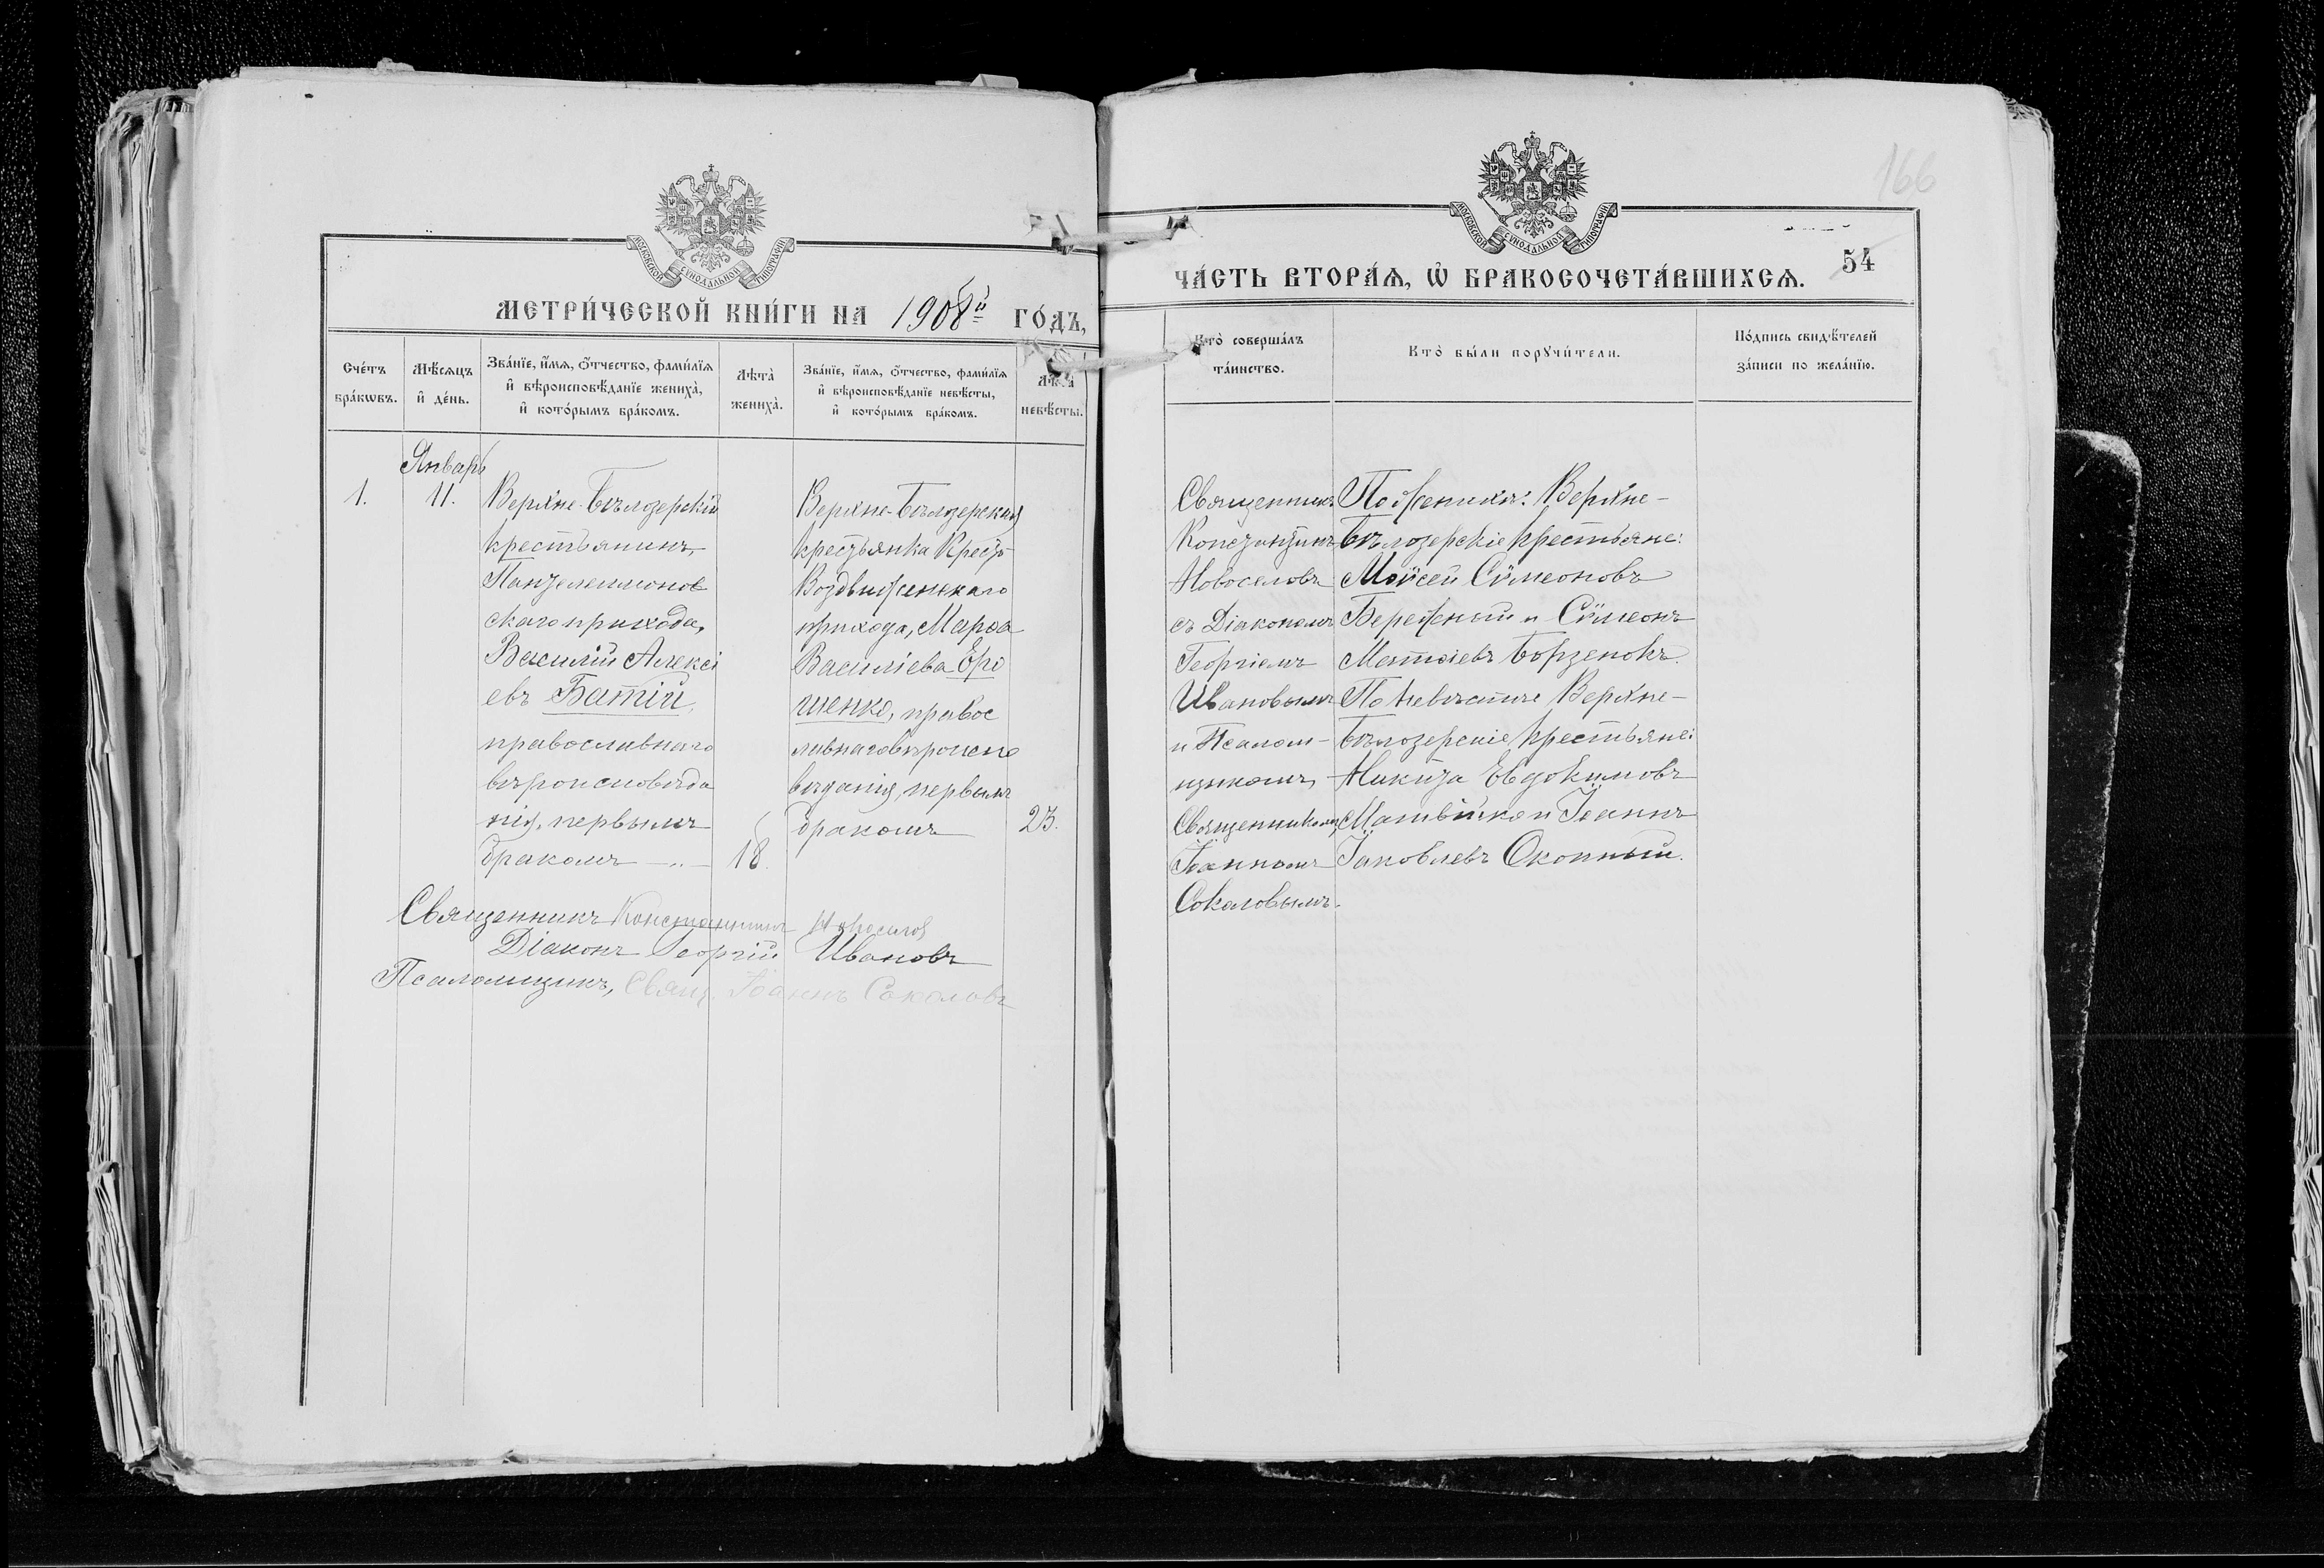 МОСКОВСКОЙ СУНОДАЛЬНОЙ ТИПОГРАФІИ
МЕТРИ́ЧЕСКОЙ КНИ́ГИ НА 1908й ГО́ДЪ,
Сче́тъ бра́кѡвъ.
Мѣ́сѧцъ и҆ де́нь.
Зва́нїе, и҆́мѧ, ѻ҆́тчество, фами́лїѧ и҆ вѣроисповѣ́данїе жениха̀, и҆ кото́рымъ бра́комъ.
Лѣта̀ жениха̀.
Зва́нїе, и҆́мѧ, ѻ҆́тчество, фами́лїѧ и҆ вѣроисповѣ́данїе невѣ́сты, и҆ кото́рымъ бра́комъ.
Лѣта̀ невѣ́сты.
Январь
1.
11.
Верхне-Бѣлозерскій
крестьянинъ,
Пантелеимонов
скаго прихода,
Василій Алексі
евъ Батій,
православнаго
вѣроисповѣда
нія, первымъ
бракомъ
18.
Верхне-Бѣлозерская
крестьянка Кресто
Воздвиженскаго
прихода, Марѳа
Василіева Ѳро
шенко, правос
лавнаго вѣроиспо
вѣданія, первымъ
бракомъ
23.
Священникъ Константинъ Новосилов
Діаконъ Георгій Ивановъ
Псаломщикъ, Свящ. Іоаннъ Соколовъ
166
МОСКОВСКОЙ СУНОДАЛЬНОЙ ТИПОГРАФІИ
ЧА́СТЬ ВТОРА́Ѧ, Ѡ҆ БРАКОСОЧЕТА́ВШИХСѦ.
54
Кто̀ соверша́лъ та́инство.
Кто̀ бы́ли порꙋчи́тели.
По́дпись свидѣ́телей за́писи по жела́нїю.
Священникъ
Константинъ
Новоселовъ
съ Діакономъ
Георгіемъ
Ивановымъ
и Псалом-
щикомъ,
Священникомъ
Іоанномъ
Соколовымъ.
По женихѣ: Верхне-
Бѣлозерскіе крестьяне:
Моисей Сѵмеоновъ
Бережный и Сѵмеонъ
Матѳіевъ Борзенокъ.
По невѣстѣ Верхне-
Бѣлозерскіе крестьяне:
Никита Евдокимовъ
Матвійко и Іоаннъ
Іаковлевъ Оконный.